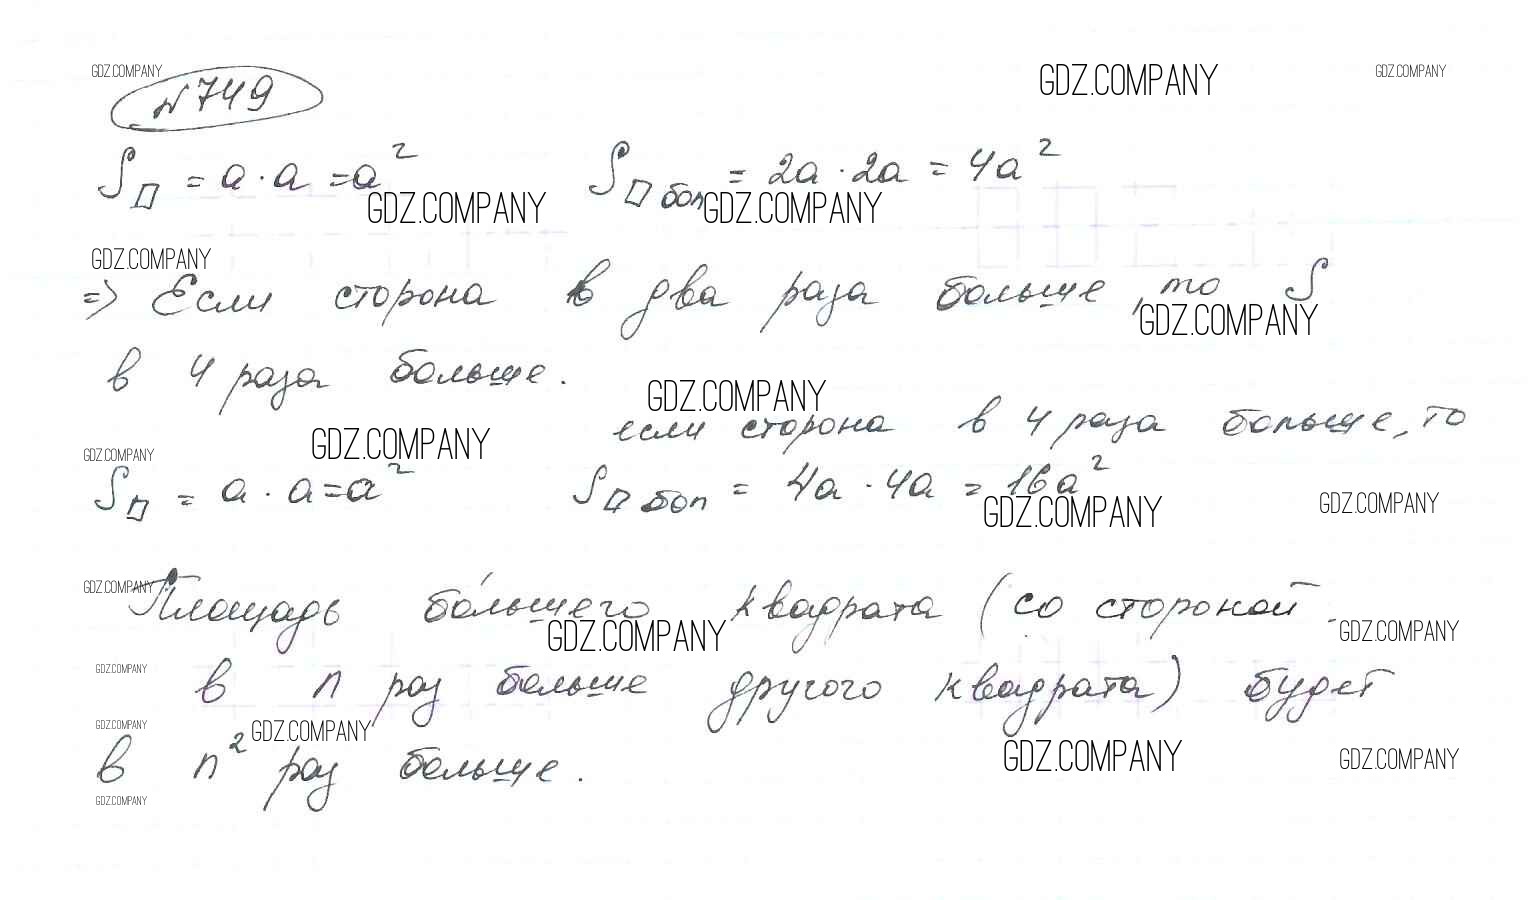 GDZ.COMPANY GDZ.COMPANY GDZ.COMPANY
№749
S□ = a · a = a² S□ бол = 2a · 2a = 4a²
GDZ.COMPANY GDZ.COMPANY
GDZ.COMPANY
=> Если сторона в два раза больше, то S
GDZ.COMPANY
в 4 раза больше.
GDZ.COMPANY
если сторона в 4 раза больше, то
GDZ.COMPANY
GDZ.COMPANY
S□ = a · a = a² S□ бол = 4a · 4a = 16a²
GDZ.COMPANY GDZ.COMPANY
GDZ.COMPANY
Площадь бо́льшего квадрата (со стороной
GDZ.COMPANY GDZ.COMPANY
GDZ.COMPANY
в n раз больше другого квадрата) будет
GDZ.COMPANY GDZ.COMPANY
в n² раз больше.
GDZ.COMPANY GDZ.COMPANY
GDZ.COMPANY